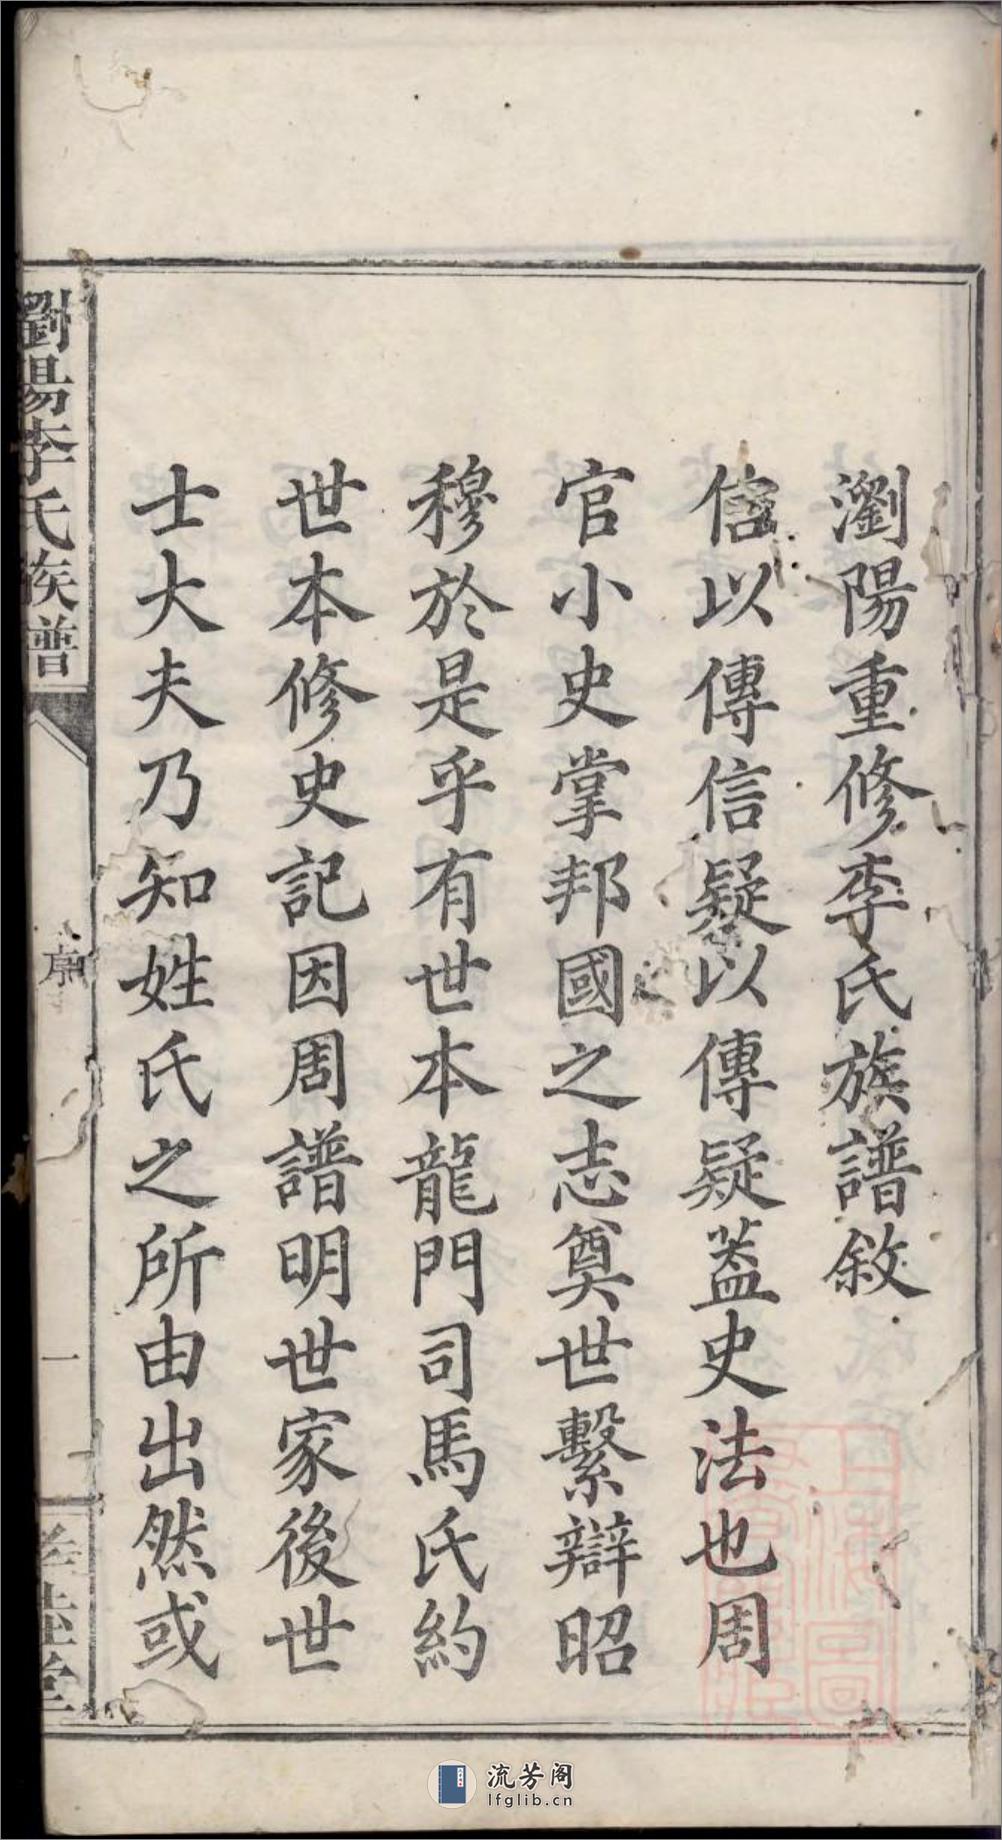 瀏陽重修李氏族譜敘
信以傳信疑以傳疑蓋史法也周
官小史掌邦國之志奠世繫辯昭
穆於是乎有世本龍門司馬氏約
世本修史記因周譜明世家後世
士大夫乃知姓氏之所由出然或
瀏陽李氏族譜
序
一
堂
流芳阁
lfglib.cn